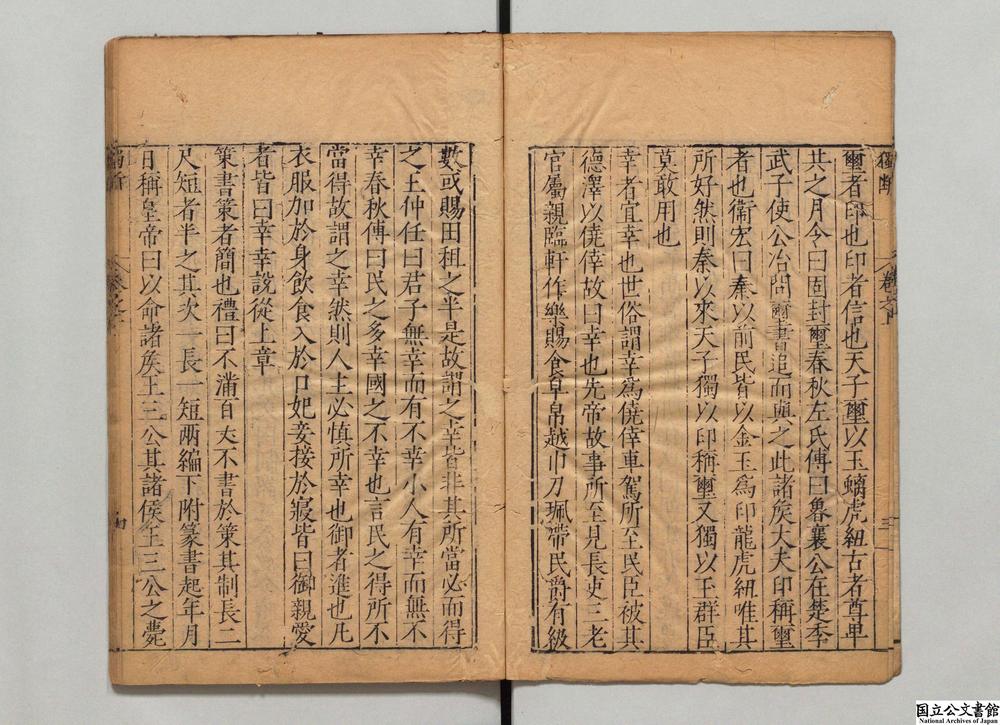 獨斷 卷之上 三
璽者印也印者信也天子璽以玉螭虎紐古者尊卑
共之月令曰固封璽春秋左氏傳曰魯襄公在楚季
武子使公冶問璽書追而與之此諸矦大夫印稱璽
者也衛宏曰秦以前民皆以金玉爲印龍虎紐唯其
所好然則秦以來天子獨以印稱璽又獨以玉群臣
莫敢用也
幸者宜幸也世俗謂幸爲僥倖車駕所至民臣被其
德澤以僥倖故曰幸也先帝故事所至見長吏三老
官屬親臨軒作樂賜食皁帛越巾刀珮帶民爵有級
數或賜田租之半是故謂之幸皆非其所當必而得
之王仲任曰君子無幸而有不幸小人有幸而無不
幸春秋傳曰民之多幸國之不幸也言民之得所不
當得故謂之幸然則人主必慎所幸也御者進也凡
衣服加於身飲食入於口妃妾接於寢皆曰御親愛
者皆曰幸幸說從上章
策書策者簡也禮曰不滿百文不書於策其制長二
尺短者半之其次一長一短兩編下附篆書起年月
日稱皇帝曰以命諸矦王三公其諸侯王三公之薨
国立公文書館
National Archives of Japan